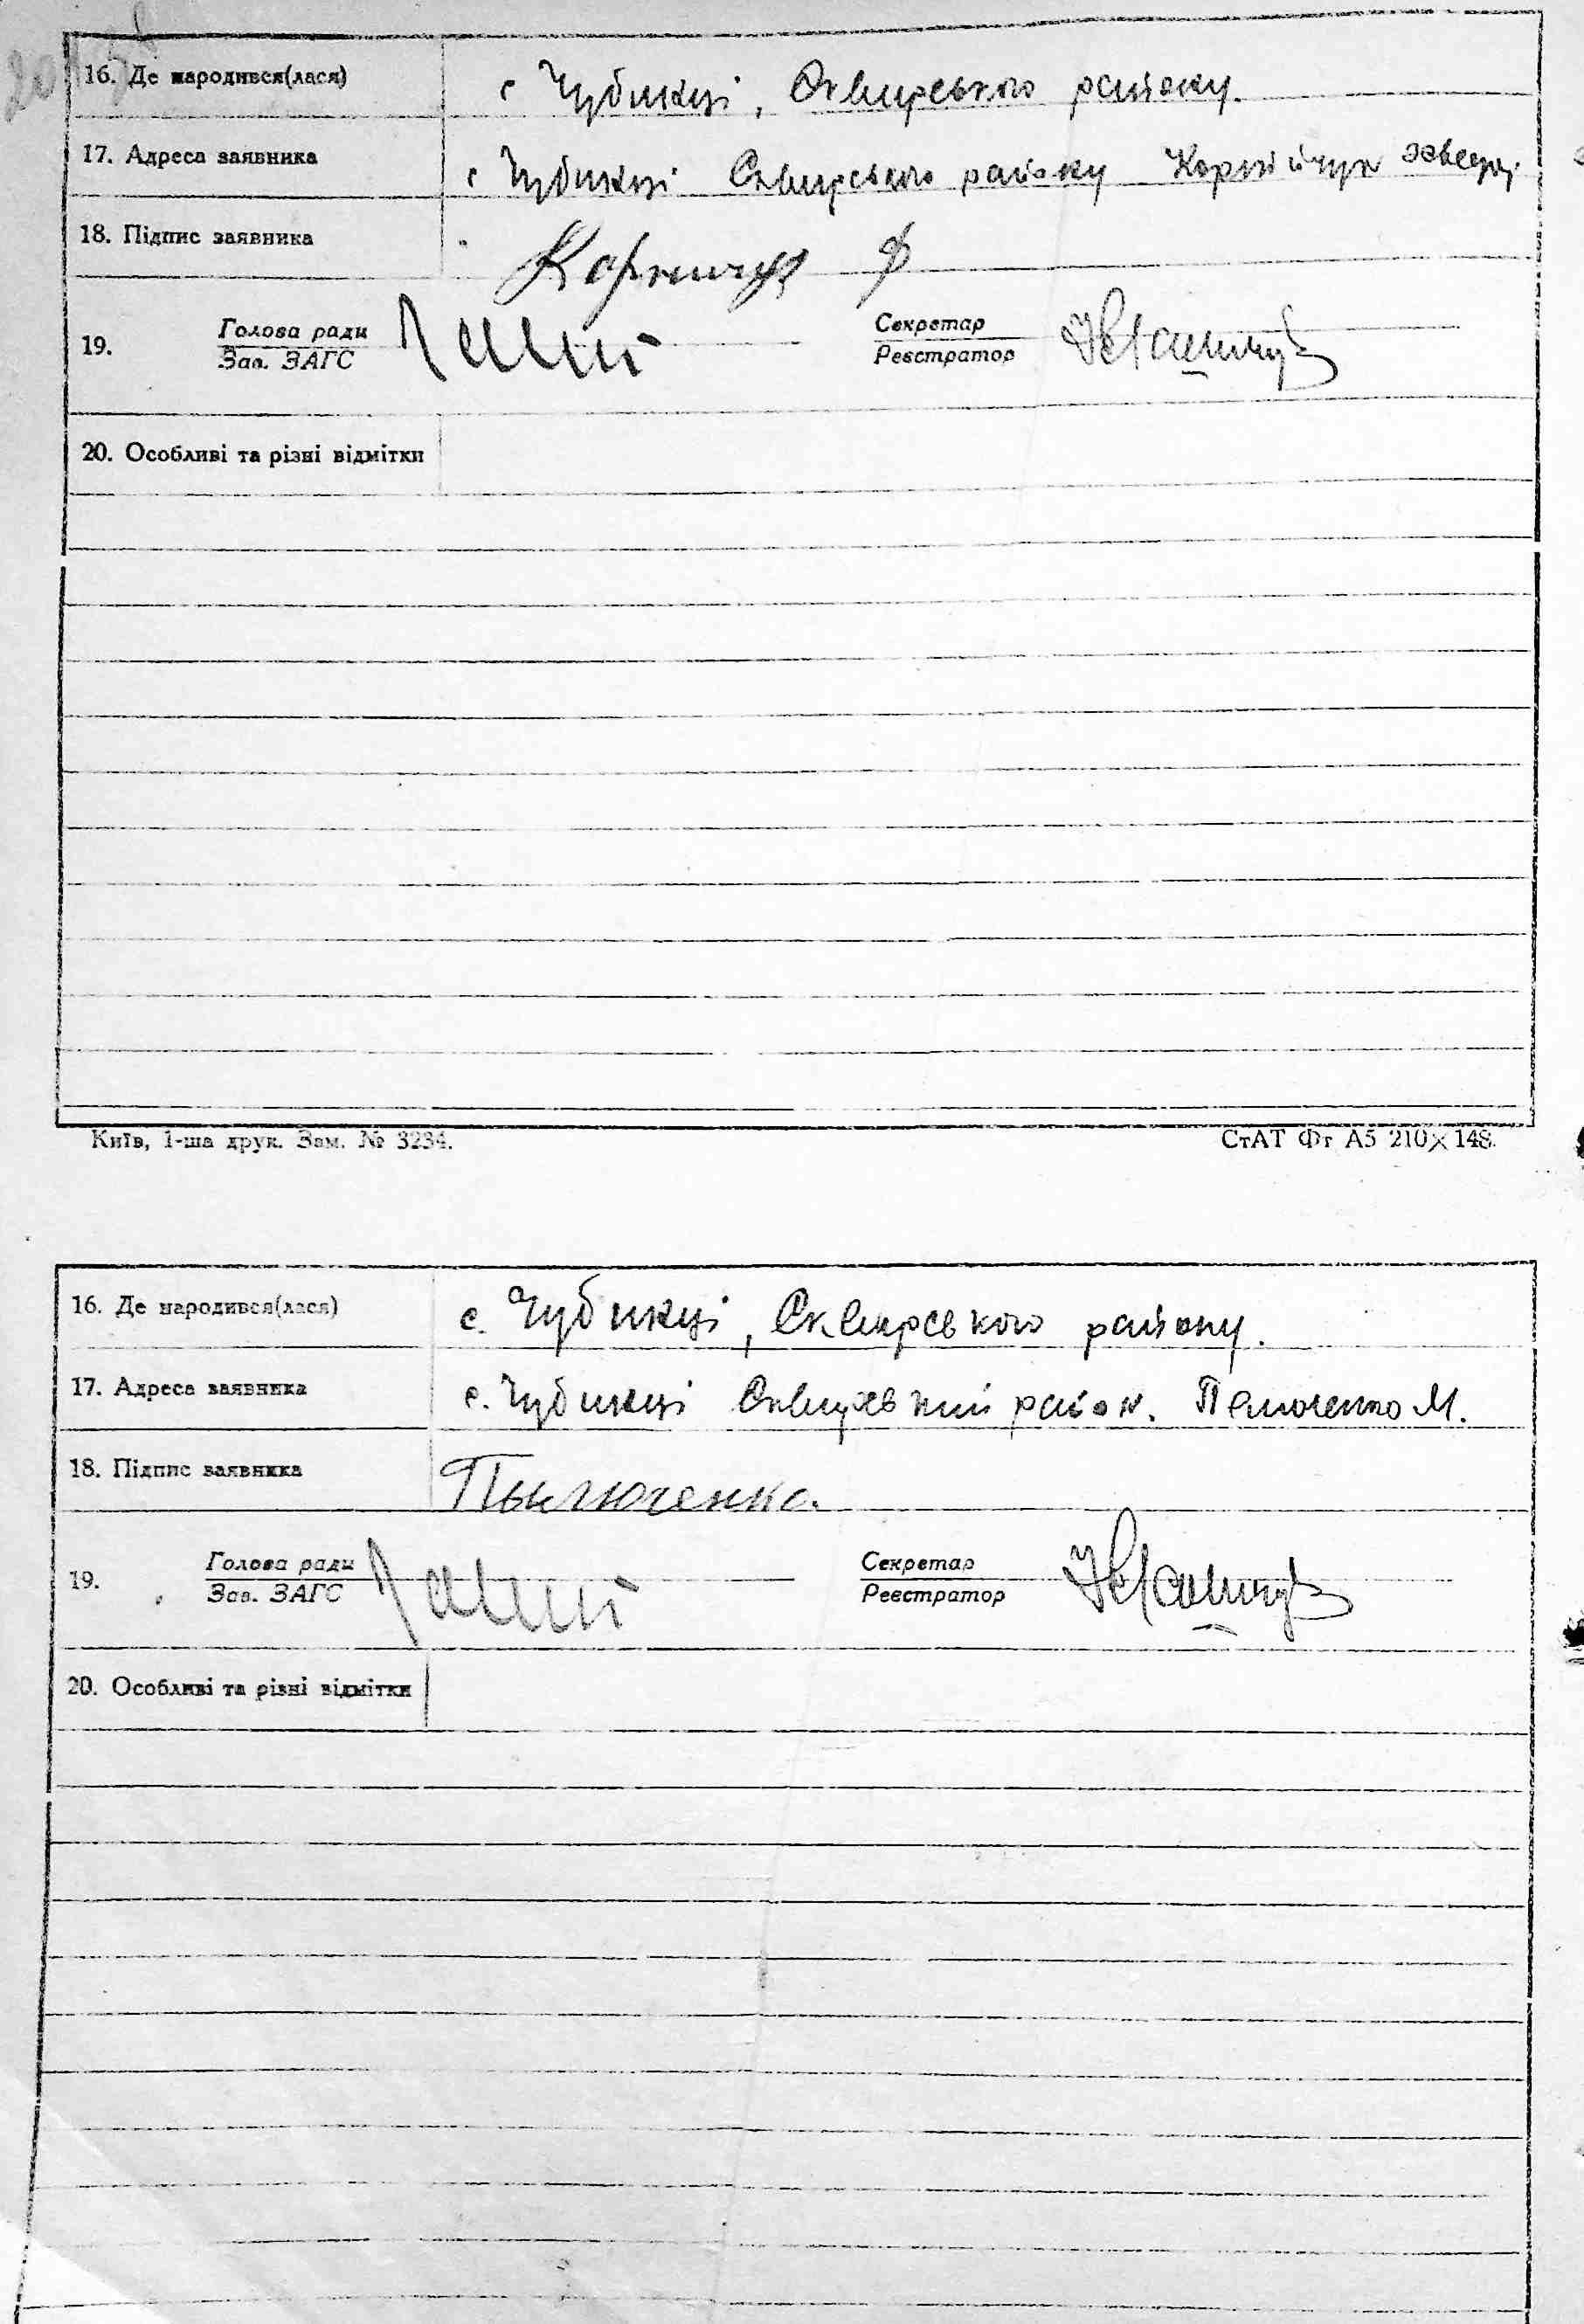 16. Де народився(лася) с Чубинці, Сквирського району.
17. Адреса заявника с Чубинці Сквирського району Корнійчук
18. Підпис заявника Корнійчук Ф
Голова ради Секретар
19.
Зав. ЗАГС Реєстратор
20. Особливі та різні відмітки
Київ, 1-ша друк. Зам. № 3234. СтАТ Фг А5 210×148.
16. Де народився(лася) с. Чубинці, Сквирського району.
17. Адреса заявника с. Чубинці Сквирський район. М.
18. Підпис заявника
Голова ради Секретар
19.
Зав. ЗАГС Реєстратор
20. Особливі та різні відмітки